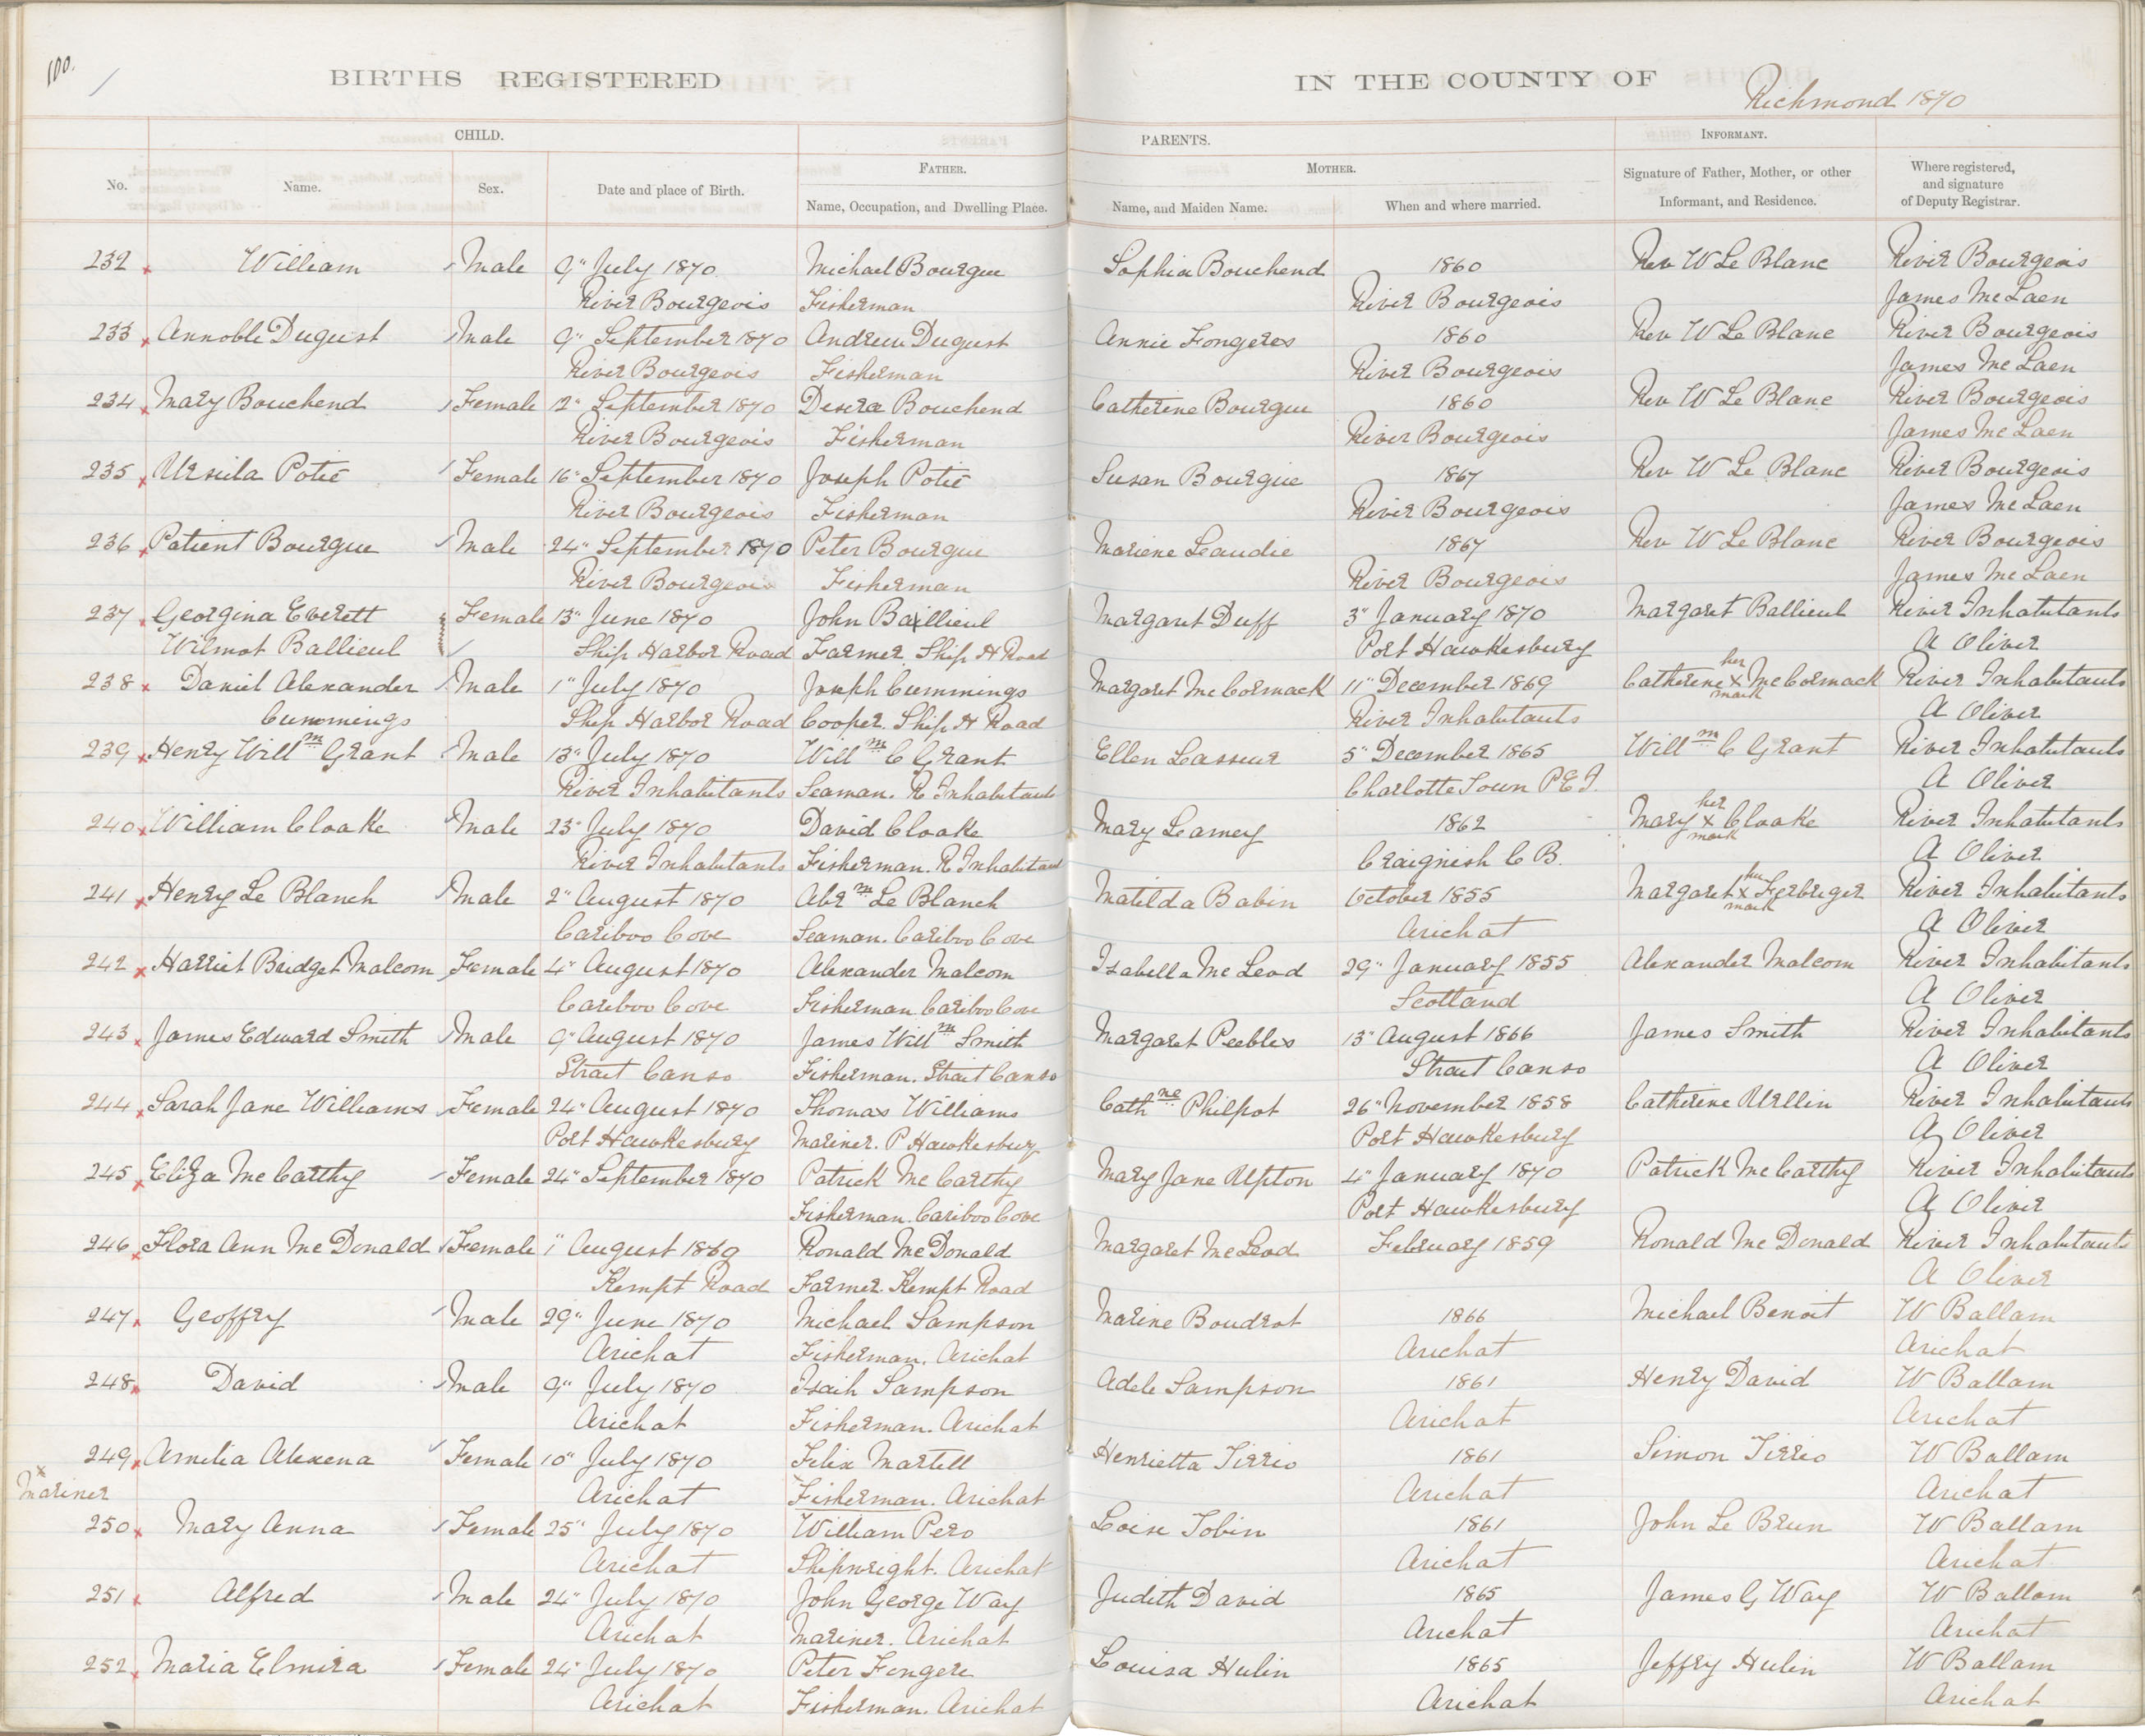 100.
BIRTHS REGISTERED IN THE COUNTY OF Richmond 1870
CHILD. PARENTS. INFORMANT.
No. Name. Sex. Date and place of Birth. FATHER. Name, Occupation, and Dwelling Place. MOTHER. Name, and Maiden Name. When and where married. Signature of Father, Mother, or other Informant, and Residence. Where registered, and signature of Deputy Registrar.
232 William Male 9" July 1870 Michael Bourgue Sophia Bouchend 1860 Rev W Le Blanc River Bourgeois
River Bourgeois Fisherman River Bourgeois James McLaen
233 Annoble Dugust Male 9" September 1870 Andrew Dugust Annie Fongeres 1860 Rev W Le Blanc River Bourgeois
River Bourgeois Fisherman River Bourgeois James McLaen
234 Mary Bouchend Female 12" September 1870 Desera Bouchend Catherine Bourgue 1860 Rev W Le Blanc River Bourgeois
River Bourgeois Fisherman River Bourgeois James McLaen
235 Ursula Potie Female 16" September 1870 Joseph Potie Susan Bourgue 1867 Rev W Le Blanc River Bourgeois
River Bourgeois Fisherman River Bourgeois James McLaen
236 Patient Bourgue Male 24" September 1870 Peter Bourgue Mariene Leaudie 1867 Rev W Le Blanc River Bourgeois
River Bourgeois Fisherman River Bourgeois James McLaen
237 Georgina Everett Female 13" June 1870 John Baillieul Margaret Duff 3" January 1870 Margaret Ballieul River Inhabitants
Wilmot Ballieul Ship Harbor Road Farmer. Ship H Road Port Hawkesbury A Oliver
238 Daniel Alexander Male 1" July 1870 Joseph Cummings Margaret McCormack 11" December 1869 Catherine her x mark McCormack River Inhabitants
Cummings Ship Harbor Road Cooper. Ship H Road River Inhabitants A Oliver
239 Henry Willm Grant Male 13" July 1870 Willm C Grant Ellen Lasseur 5" December 1865 Willm C Grant River Inhabitants
River Inhabitants Seaman. R Inhabitants Charlotte Town P E I. A Oliver
240 William Cloake Male 23" July 1870 David Cloake Mary Leamey 1862 Mary her x mark Cloake River Inhabitants
River Inhabitants Fisherman. R Inhabitant Craignish C B. A Oliver
241 Henry Le Blanch Male 2" August 1870 Abrm Le Blanch Matilda Babin October 1855 Margaret her x mark Ferbriger River Inhabitants
Cariboo Cove Seaman. Cariboo Cove Arichat A Oliver
242 Harriet Bridget Malcom Female 4" August 1870 Alexander Malcom Isabella McLeod 29" January 1855 Alexander Malcom River Inhabitants
Cariboo Cove Fisherman Cariboo Cove Scotland A Oliver
243 James Edward Smith Male 9" August 1870 James Willm Smith Margaret Peebles 13" August 1866 James Smith River Inhabitants
Strait Canso Fisherman. Strait Canso Strait Canso A Oliver
244 Sarah Jane Williams Female 24" August 1870 Thomas Williams Cathne Philpot 26" November 1858 Catherine Urllin River Inhabitants
Port Hawkesbury Mariner. P Hawkesbury Port Hawkesbury A Oliver
245 Eliza McCarthy Female 24" September 1870 Patrick McCarthy Mary Jane Upton 4" January 1870 Patrick McCarthy River Inhabitants
Fisherman. Cariboo Cove Port Hawkesbury A Oliver
246 Flora Ann McDonald Female 1" August 1869 Ronald McDonald Margaret McLeod February 1859 Ronald McDonald River Inhabitants
Kempt Road Farmer. Kempt Road A Oliver
247 Geoffry Male 29" June 1870 Michael Sampson Marine Boudrot 1866 Michael Benoit W Ballam
Arichat Fisherman. Arichat Arichat Arichat
248 David Male 9" July 1870 Isaih Sampson Adele Sampson 1861 Henry David W Ballam
Arichat Fisherman. Arichat Arichat Arichat
249 Amelia Alexena Female 10" July 1870 Felix Martell Henrietta Tirrio 1861 Simon Tirrio W Ballam
x Mariner Arichat Fisherman. Arichat Arichat Arichat
250 Mary Anna Female 25" July 1870 William Pero Loise Tobin 1861 John Le Brun W Ballam
Arichat Shipwright. Arichat Arichat Arichat
251 Alfred Male 24" July 1870 John George Way Judith David 1865 James G Way W Ballam
Arichat Mariner. Arichat Arichat Arichat
252 Maria Elmira Female 24" July 1870 Peter Fengere Louisa Hulin 1865 Jeffry Hulin W Ballam
Arichat Fisherman. Arichat Arichat Arichat